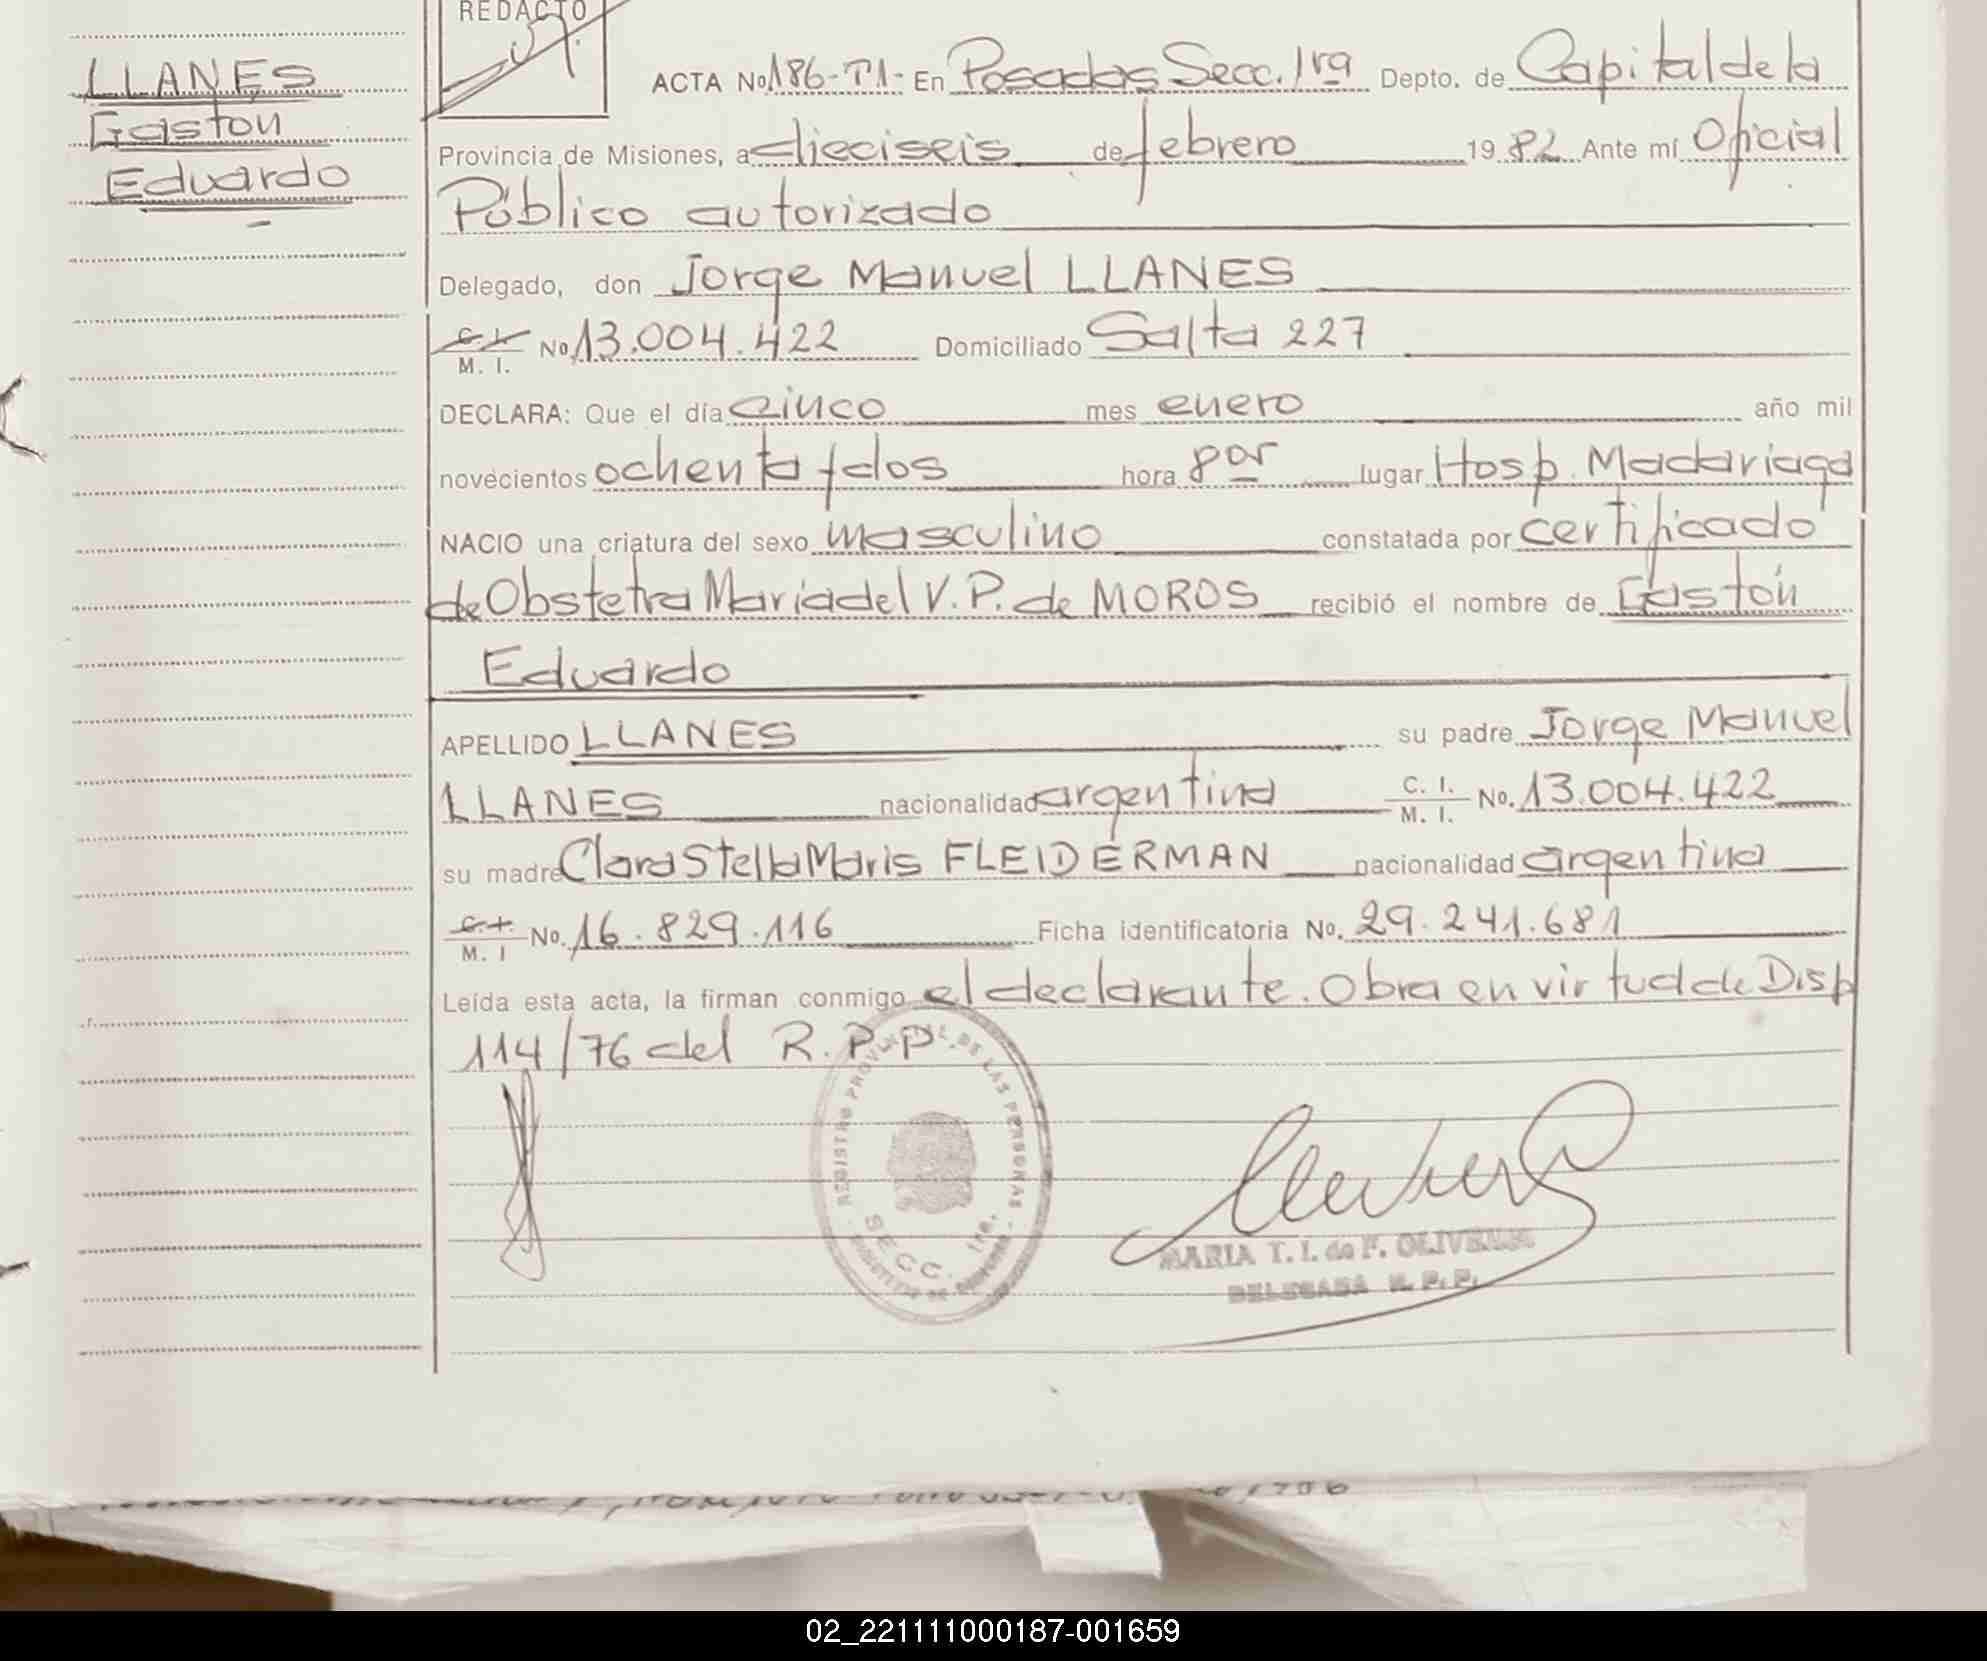 REDACTO
LLANES
Gastón
Eduardo
ACTA No 186-T1- En Posadas Secc. 1ra Depto. de Capital de la
Provincia de Misiones, a dieciseis de febrero 19 82 Ante mí Oficial
Público autorizado
Delegado, don Jorge Manuel LLANES
C. I. / M. I. No 13.004.422 Domiciliado Salta 227
DECLARA: Que el día cinco mes enero año mil
novecientos ochenta y dos hora 8 por lugar Hosp. Madariaga
NACIO una criatura del sexo masculino constatada por certificado
de Obstetra María del V. P. de MOROS recibió el nombre de Gastón
Eduardo
APELLIDO LLANES su padre Jorge Manuel
LLANES nacionalidad argentina C. I. / M. I. No. 13.004.422
su madre Clara Stella Maris FLEIDERMAN nacionalidad argentina
C. I. / M. I No. 16.829.116 Ficha identificatoria No. 29.241.681
Leída esta acta, la firman conmigo el declarante. Obra en virtud de Disp
114/76 del R. P. P.
REGISTRO PROVINCIAL DE LAS PERSONAS
SECC. 1ra.
MARIA T. I. de F. OLIVEIRA
DELEGADA R. P. P.
02_221111000187-001659